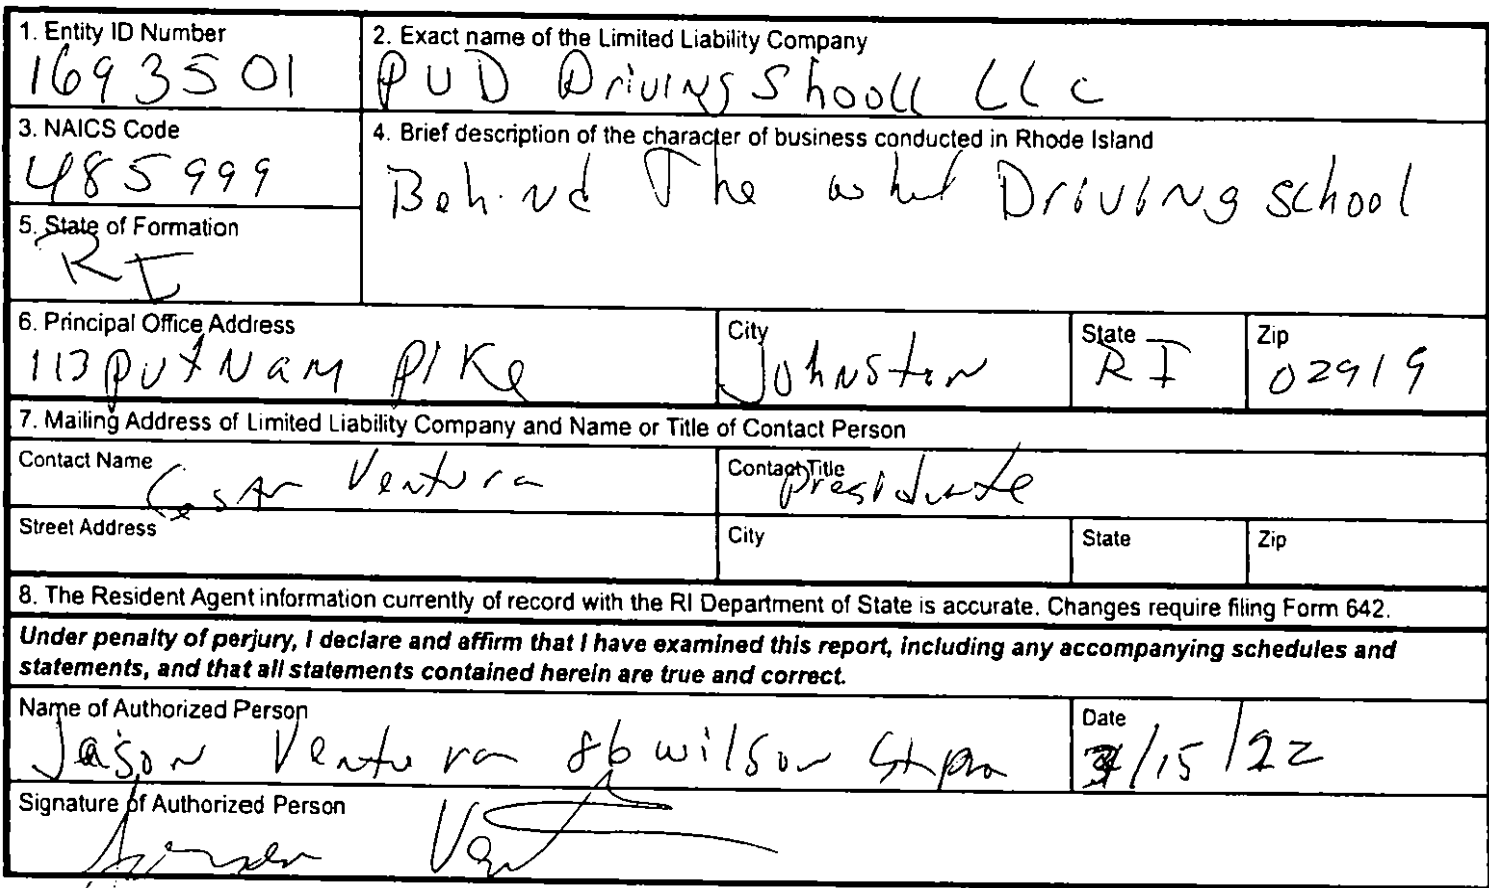 1. Entity ID Number
1693501
2. Exact name of the Limited Liability Company
PUD Driving Shooll LLC
3. NAICS Code
485999
4. Brief description of the character of business conducted in Rhode Island
Behind The whel Driving school
5. State of Formation
RI
6. Principal Office Address
113 putnam pike
City
Johnston
State
RI
Zip
02919
7. Mailing Address of Limited Liability Company and Name or Title of Contact Person
Contact Name
Cesar Ventura
Contact Title
Presidunte
Street Address
City
State
Zip
8. The Resident Agent information currently of record with the RI Department of State is accurate. Changes require filing Form 642.
Under penalty of perjury, I declare and affirm that I have examined this report, including any accompanying schedules and
statements, and that all statements contained herein are true and correct.
Name of Authorized Person
Jason Ventura 86 wilson St
Date
3/15/22
Signature of Authorized Person